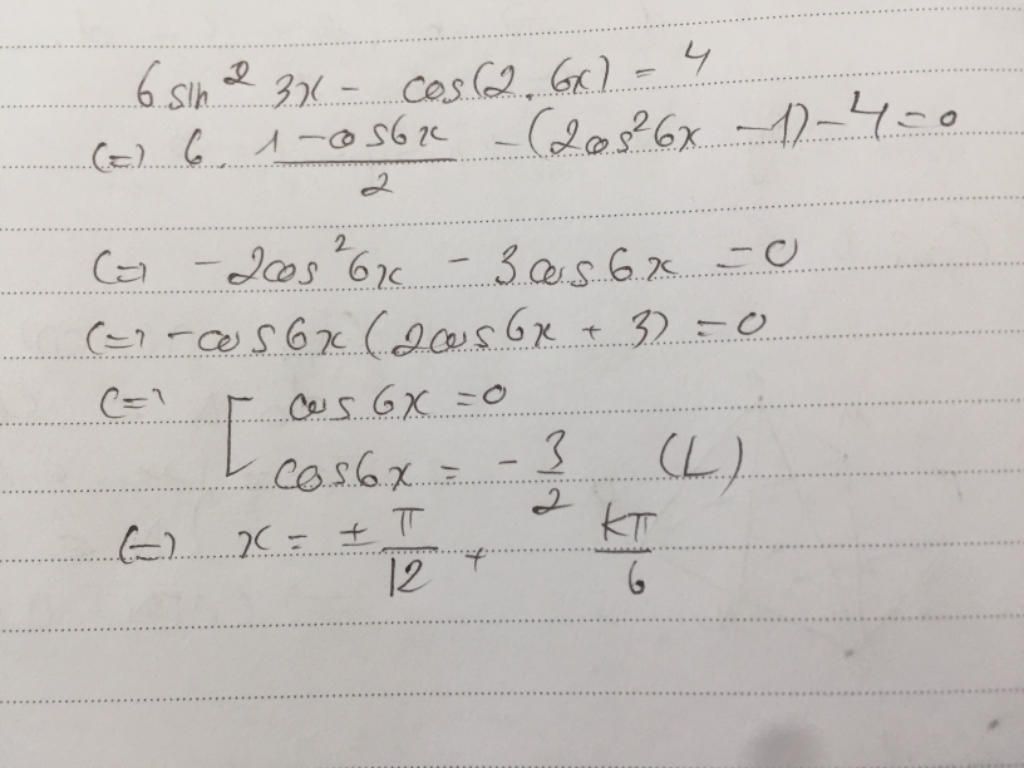 6 sin² 3x - cos(2.6x) = 4
(=) 6. (1 - cos6x)/2 - (2cos²6x - 1) - 4 = 0
(=) -2cos²6x - 3cos6x = 0
(=) -cos6x (2cos6x + 3) = 0
(=) [ cos6x = 0
cos6x = -3/2 (L)
(=) x = ± π/12 + kπ/6